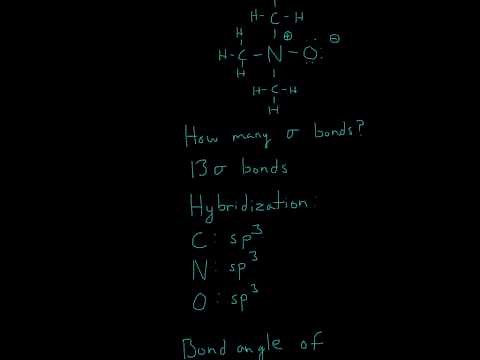 H
H-C-H
H ⊕ ⊖
H-C-N-O:
H
H-C-H
H
How many σ bonds?
13σ bonds
Hybridization:
C: sp³
N: sp³
O: sp³
Bond angle of